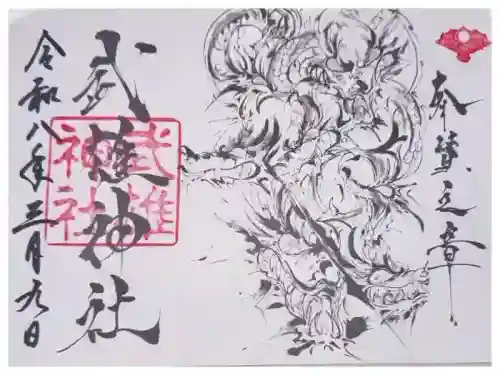 奉賛之章
武雄神社
武雄
神社
令和八年三月九日